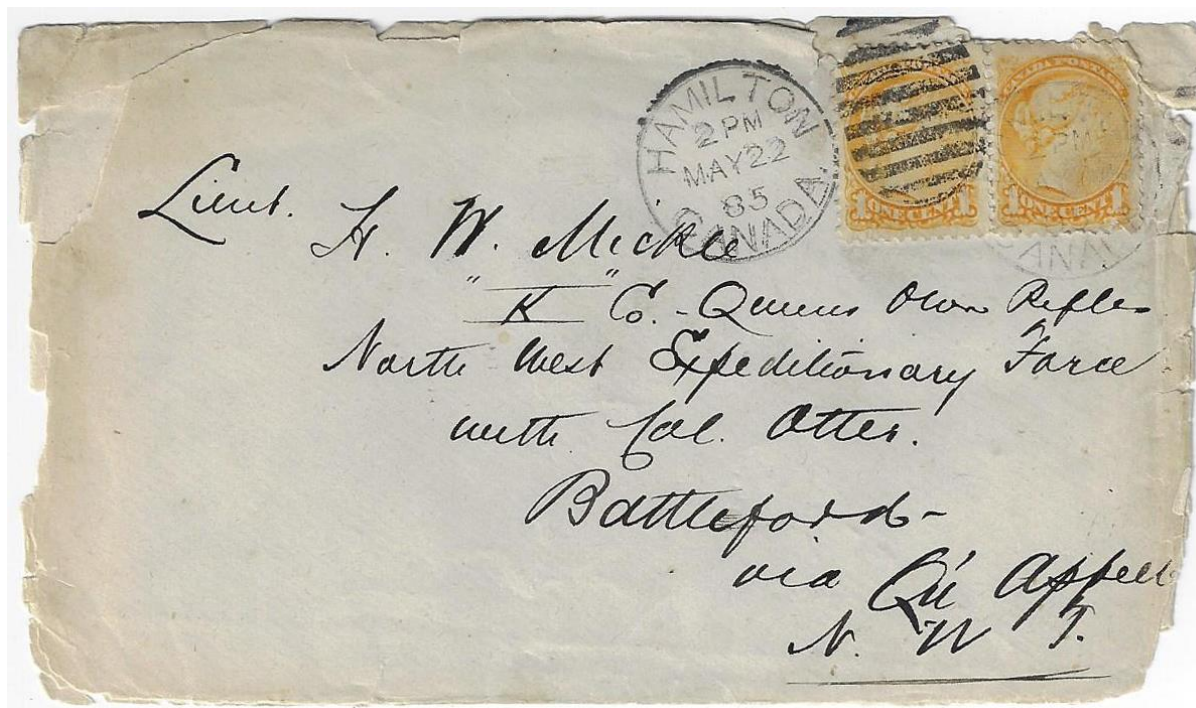 HAMILTON
2 PM
MAY 22
85
CANADA
1 ONE CENT 1
1 ONE CENT 1
PM
CANA
Lieut. H. W. Mickle
"K" Co. - Queens Own Rifles
North West Expeditionary Force
with Col. Otter.
Battleford -
via Qu' Appelle
N. W T.